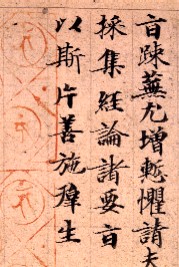 㫖踈蕪尤增慙懼請
採集經論諸要㫖
以斯片善施群生